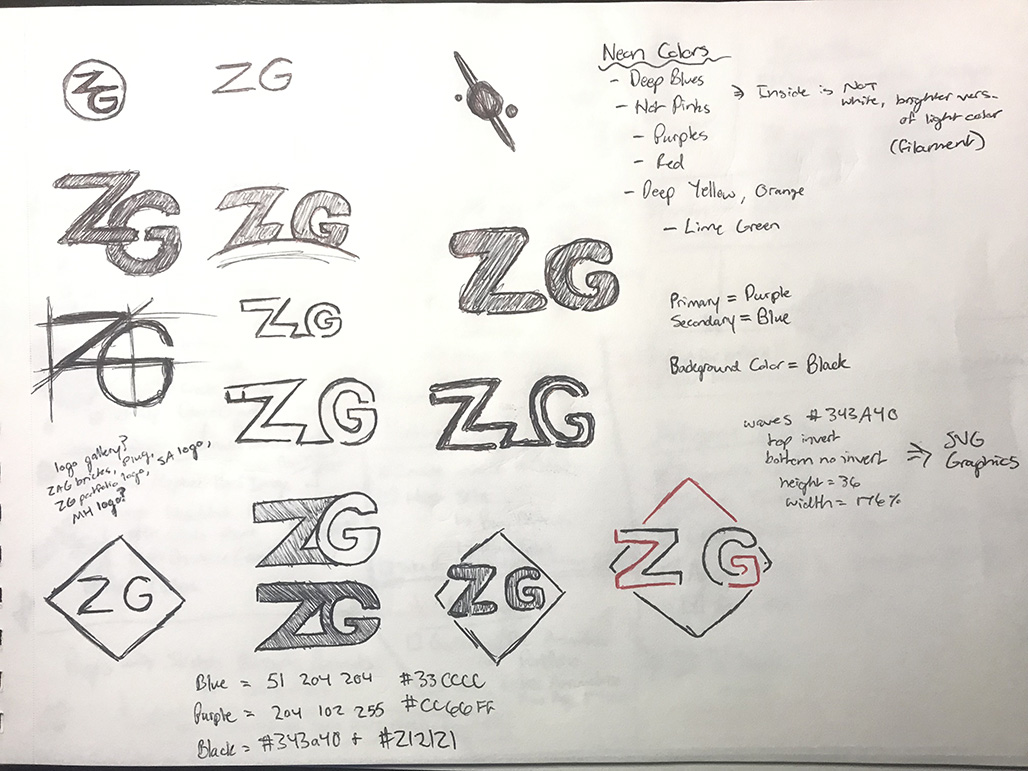 ZG
ZG
ZG
ZG
ZG
ZG
ZG
ZG
ZG
ZG
logo gallery?
ZAG bricks, plug, SA logo,
ZG portfolio logo,
MH logo?
ZG
ZG
ZG
ZG
ZG
Neon Colors
- Deep Blues
- Hot Pinks
- Purples
- Red
- Deep Yellow, Orange
- Lime Green
⇒ Inside is NOT
white, brighter vers-
of light color
(filament)
Primary = Purple
Secondary = Blue
Background Color = Black
waves #343A40
top invert
bottom no invert
height = 36
width = 176%
⇒ SVG
Graphics
Blue = 51 204 204 #33CCCC
Purple = 204 102 255 #CC66FF
Black = #343a40 + #212121